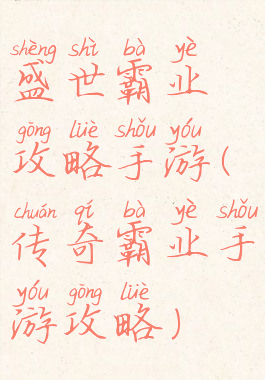 shèng shì bà yè
盛世霸业
gōng lüè shǒu yóu
攻略手游(
chuán qí bà yè shǒu
传奇霸业手
yóu gōng lüè
游攻略)